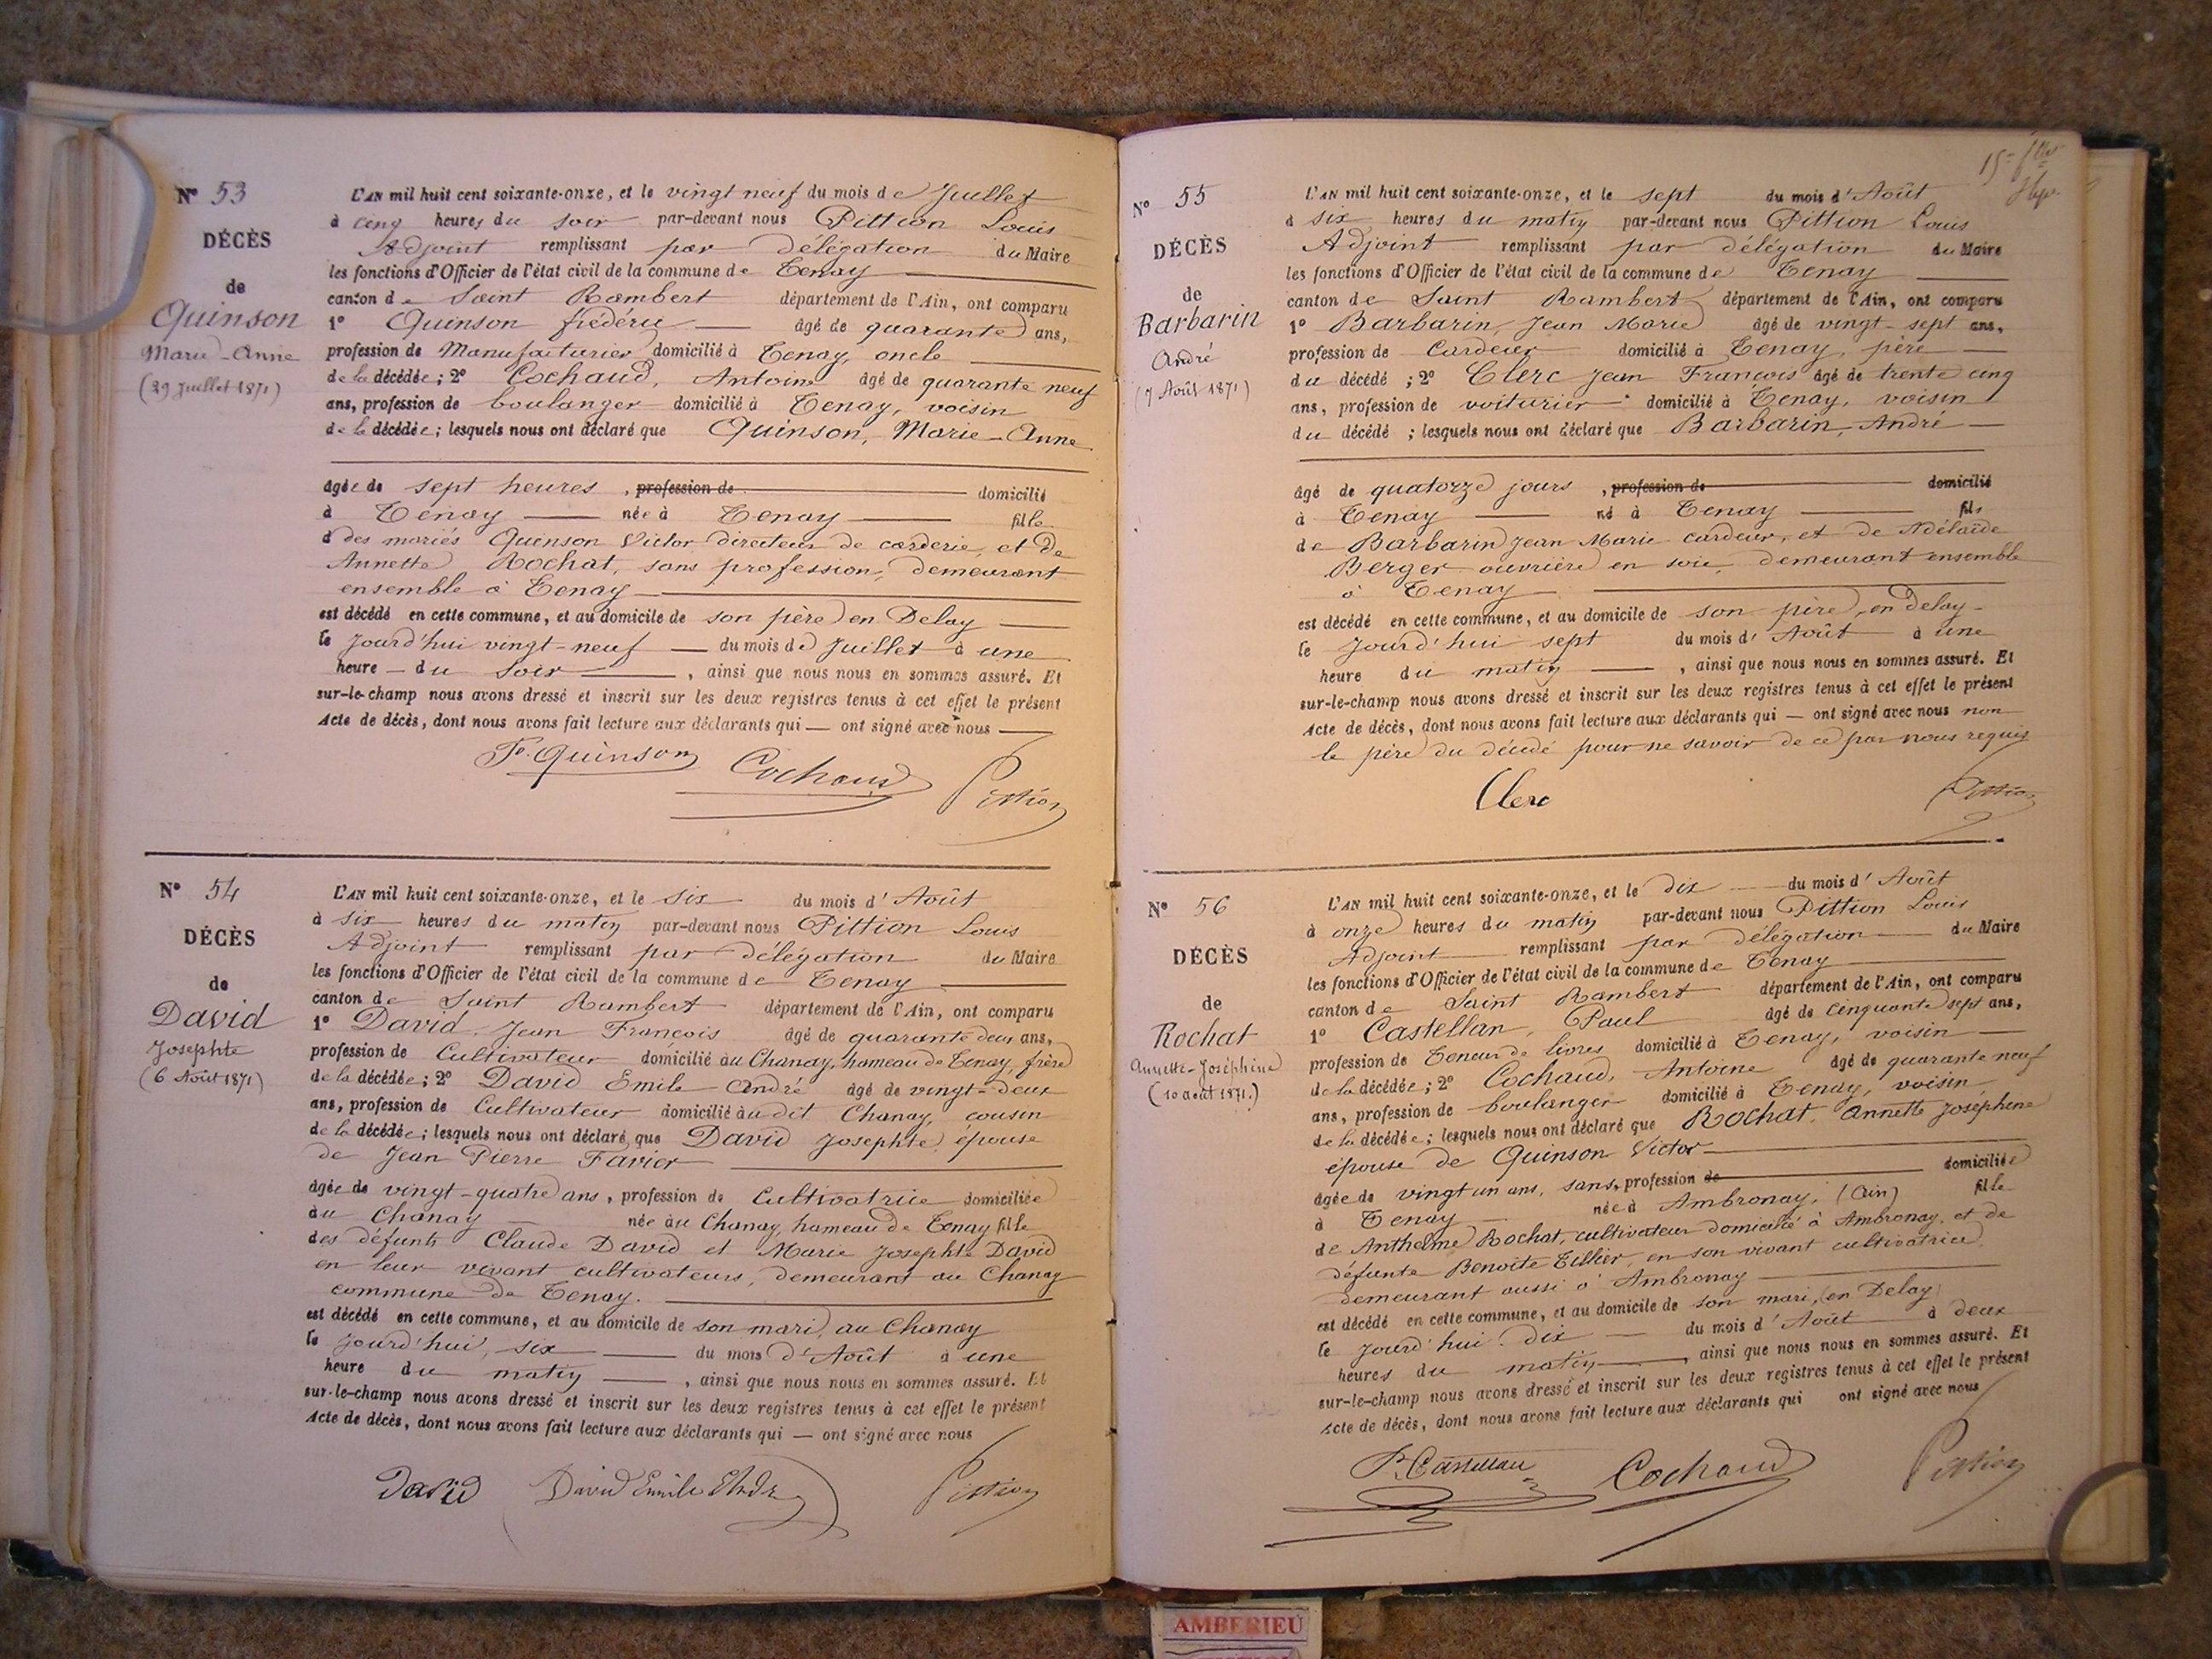 N° 53
DÉCÈS
de
Quinson
Marie-Anne
(29 Juillet 1871)
L'AN mil huit cent soixante-onze, et le vingt neuf du mois de Juillet
à cinq heures du soir par-devant nous Pittion Louis
Adjoint remplissant par délégation du Maire
les fonctions d'Officier de l'état civil de la commune de Tenay
canton de Saint Rambert département de l'Ain, ont comparu
1° Quinson frédéric âgé de quarante ans,
profession de Manufacturier domicilié à Tenay, oncle
de la décédée; 2° Cochaud, Antoine âgé de quarante neuf
ans, profession de boulanger domicilié à Tenay, voisin
de la décédée; lesquels nous ont déclaré que Quinson, Marie-Anne
âgée de sept heures, profession de domicilié
à Tenay née à Tenay fille
d des mariés Quinson Victor directeur de carderie, et de
Annette Rochat, sans profession, demeurant
ensemble à Tenay
est décédé en cette commune, et au domicile de son père en Delay
le Jourd'hui vingt-neuf du mois de Juillet à une
heure du soir, ainsi que nous nous en sommes assuré. Et
sur-le-champ nous avons dressé et inscrit sur les deux registres tenus à cet effet le présent
Acte de décès, dont nous avons fait lecture aux déclarants qui — ont signé avec nous
F. Quinson Cochaud Pittion
N° 54
DÉCÈS
de
David
Josephte
(6 Août 1871)
L'AN mil huit cent soixante-onze, et le six du mois d'Août
à six heures du matin par-devant nous Pittion Louis
Adjoint remplissant par délégation du Maire
les fonctions d'Officier de l'état civil de la commune de Tenay
canton de Saint Rambert département de l'Ain, ont comparu
1° David, Jean François âgé de quarante deux ans,
profession de Cultivateur domicilié au Chanay, hameau de Tenay, frère
de la décédée; 2° David Emile André âgé de vingt-deux
ans, profession de Cultivateur domicilié audit Chanay, cousin
de la décédée; lesquels nous ont déclaré que David Josephte, épouse
de Jean Pierre Favier
âgée de vingt-quatre ans, profession de Cultivatrice domiciliée
au Chanay née au Chanay, hameau de Tenay fille
des défunts Claude David et Marie Josephte David
en leur vivant cultivateurs, demeurant au Chanay
commune de Tenay.
est décédé en cette commune, et au domicile de son mari, au Chanay
le Jourd'hui, six du mois d'Août à une
heure du matin, ainsi que nous nous en sommes assuré. Et
sur-le-champ nous avons dressé et inscrit sur les deux registres tenus à cet effet le présent
Acte de décès, dont nous avons fait lecture aux déclarants qui — ont signé avec nous
David David Emile Pittion
15e
N° 55
DÉCÈS
de
Barbarin
André
(7 Août 1871)
L'AN mil huit cent soixante-onze, et le sept du mois d'Août
à six heures du matin par-devant nous Pittion Louis
Adjoint remplissant par délégation du Maire
les fonctions d'Officier de l'état civil de la commune de Tenay
canton de Saint Rambert département de l'Ain, ont comparu
1° Barbarin, Jean Marie âgé de vingt-sept ans,
profession de Cardeur domicilié à Tenay, père
du décédé; 2° Clerc Jean François âgé de trente cinq
ans, profession de voiturier domicilié à Tenay, voisin
du décédé; lesquels nous ont déclaré que Barbarin, André
âgé de quatorze jours, profession de domicilié
à Tenay né à Tenay fils
de Barbarin Jean Marie cardeur, et de Adélaïde
Berger ouvrière en soie, demeurant ensemble
à Tenay
est décédé en cette commune, et au domicile de son père, en Delay
le Jourd'hui sept du mois d'Août à une
heure du matin, ainsi que nous nous en sommes assuré. Et
sur-le-champ nous avons dressé et inscrit sur les deux registres tenus à cet effet le présent
Acte de décès, dont nous avons fait lecture aux déclarants qui — ont signé avec nous non
le père du décédé pour ne savoir de ce par nous requis
Clerc Pittion
N° 56
DÉCÈS
de
Rochat
Annette-Joséphine
(10 août 1871.)
L'AN mil huit cent soixante-onze, et le dix du mois d'Août
à onze heures du matin par-devant nous Pittion Louis
Adjoint remplissant par délégation du Maire
les fonctions d'Officier de l'état civil de la commune de Tenay
canton de Saint Rambert département de l'Ain, ont comparu
1° Castellan, Paul âgé de cinquante sept ans,
profession de Teneur de livres domicilié à Tenay, voisin
de la décédée; 2° Cochaud, Antoine âgé de quarante neuf
ans, profession de boulanger domicilié à Tenay, voisin
de la décédée; lesquels nous ont déclaré que Rochat, Annette Joséphine
épouse de Quinson Victor
âgée de vingt un ans, sans profession de domiciliée
à Tenay née à Ambronay, (Ain) fille
de Anthelme Rochat, cultivateur domicilié à Ambronay, et de
défunte Benoite Tillier, en son vivant cultivatrice,
demeurant aussi à Ambronay
est décédé en cette commune, et au domicile de son mari, en Delay
le Jourd'hui dix du mois d'Août à deux
heures du matin, ainsi que nous nous en sommes assuré. Et
sur-le-champ nous avons dressé et inscrit sur les deux registres tenus à cet effet le présent
Acte de décès, dont nous avons fait lecture aux déclarants qui ont signé avec nous
P. Castellan Cochaud Pittion
AMBERIEU